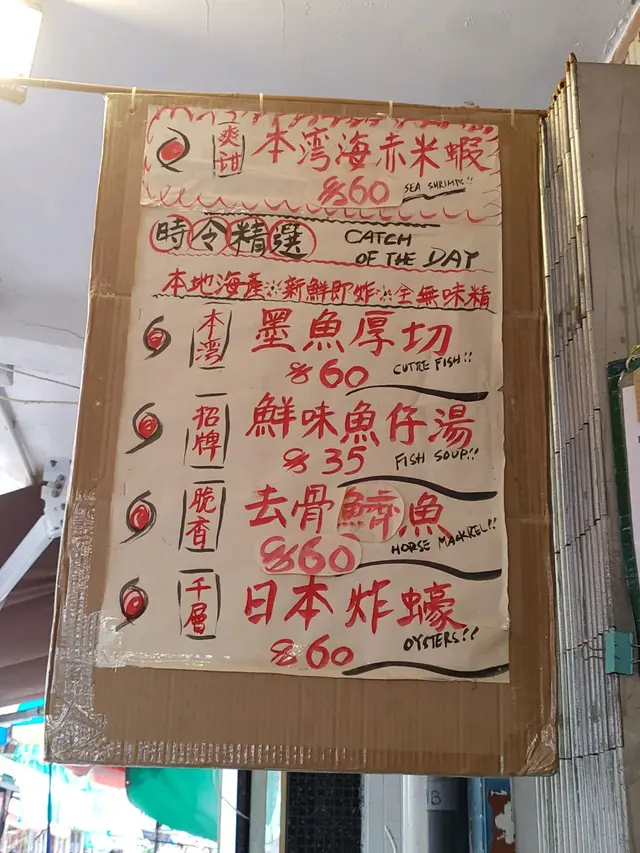 爽甜 本湾海赤米蝦
$60 SEA SHRIMPS!!
時令精選 CATCH
OF THE DAY
本地海產※新鮮即炸※全無味精
本湾 墨魚厚切
$60 CUTTLE FISH!!
招牌 鮮味魚仔湯
$35 FISH SOUP!!
脆香 去骨鱭魚
$60 HORSE MACKREL!!
千層 日本炸蠔
$60 OYSTERS!!